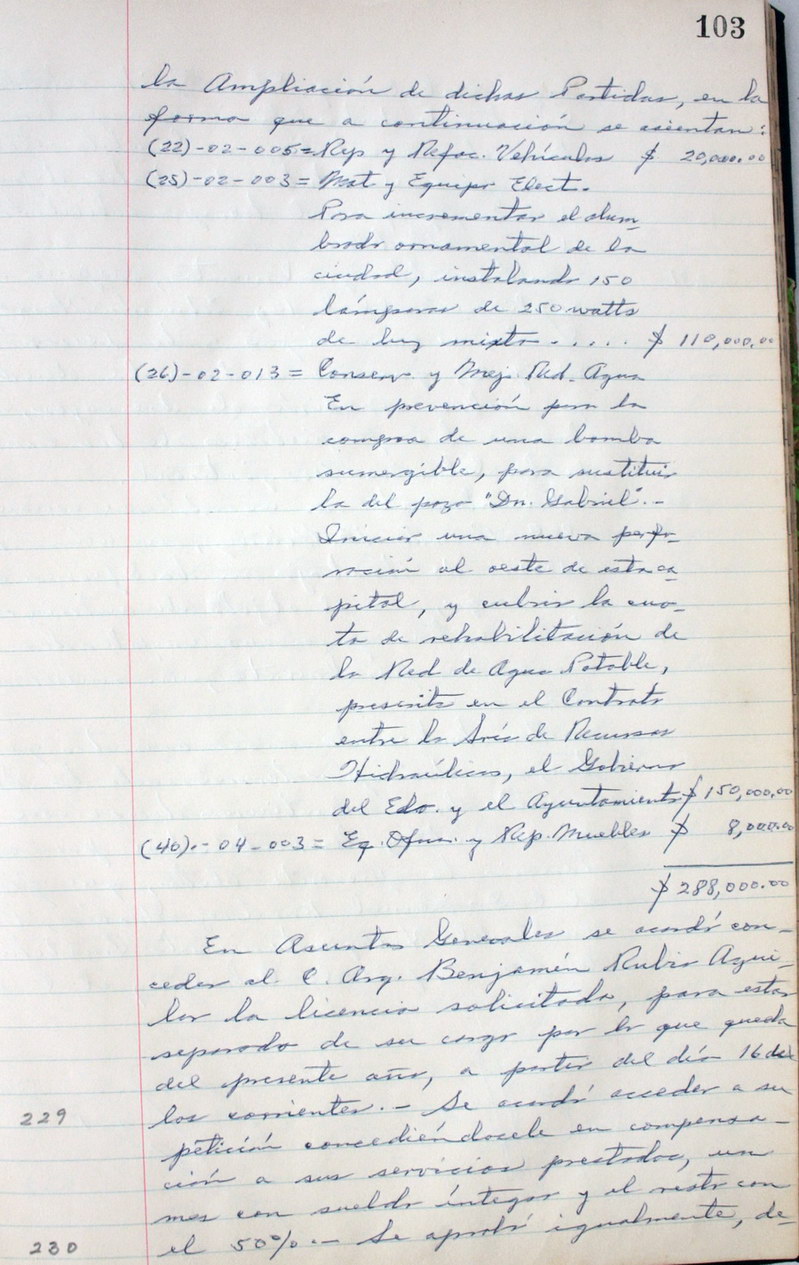 103
la Ampliación de dichas Partidas, en la
forma que a continuación se asientan:
(22)-02-005=Rep y Refac. Vehículos $ 20,000.00
(25)-02-003= Mat. y Equipo Elect.
Para incrementar el alum-
brado ornamental de la
ciudad, instalando 150
lámparas de 250 watts
de luz mixta ..... $ 110,000.00
(26)-02-013= Conserv. y Mej. Red. Agua
En prevención para la
compra de una bomba
sumergible, para sustituir
la del pozo "Dn. Gabriel".-
Iniciar una nueva perfo-
ración al oeste de esta ca-
pital, y cubrir la cuo-
ta de rehabilitación de
la Red de Agua Potable,
prescrita en el Contrato
entre la Sría de Recursos
Hidraúlicos, el Gobierno
del Edo. y el Ayuntamiento $ 150,000.00
(40).-04-003= Eq. Ofna. y Rep. Muebles $ 8,000.00
$ 288,000.00
En Asuntos Generales se acordó con-
ceder al C. Arq. Benjamín Rubio Agui-
lar la licencia solicitada, para estar
separado de su cargo por lo que queda
del presente año, a partir del día 16 de
los corrientes.- Se acordó acceder a su
229
petición concediéndosele en compensa-
ción a sus servicios prestados, un
mes con sueldo íntegro y el resto con
el 50%.- Se aprobó igualmente, de-
230